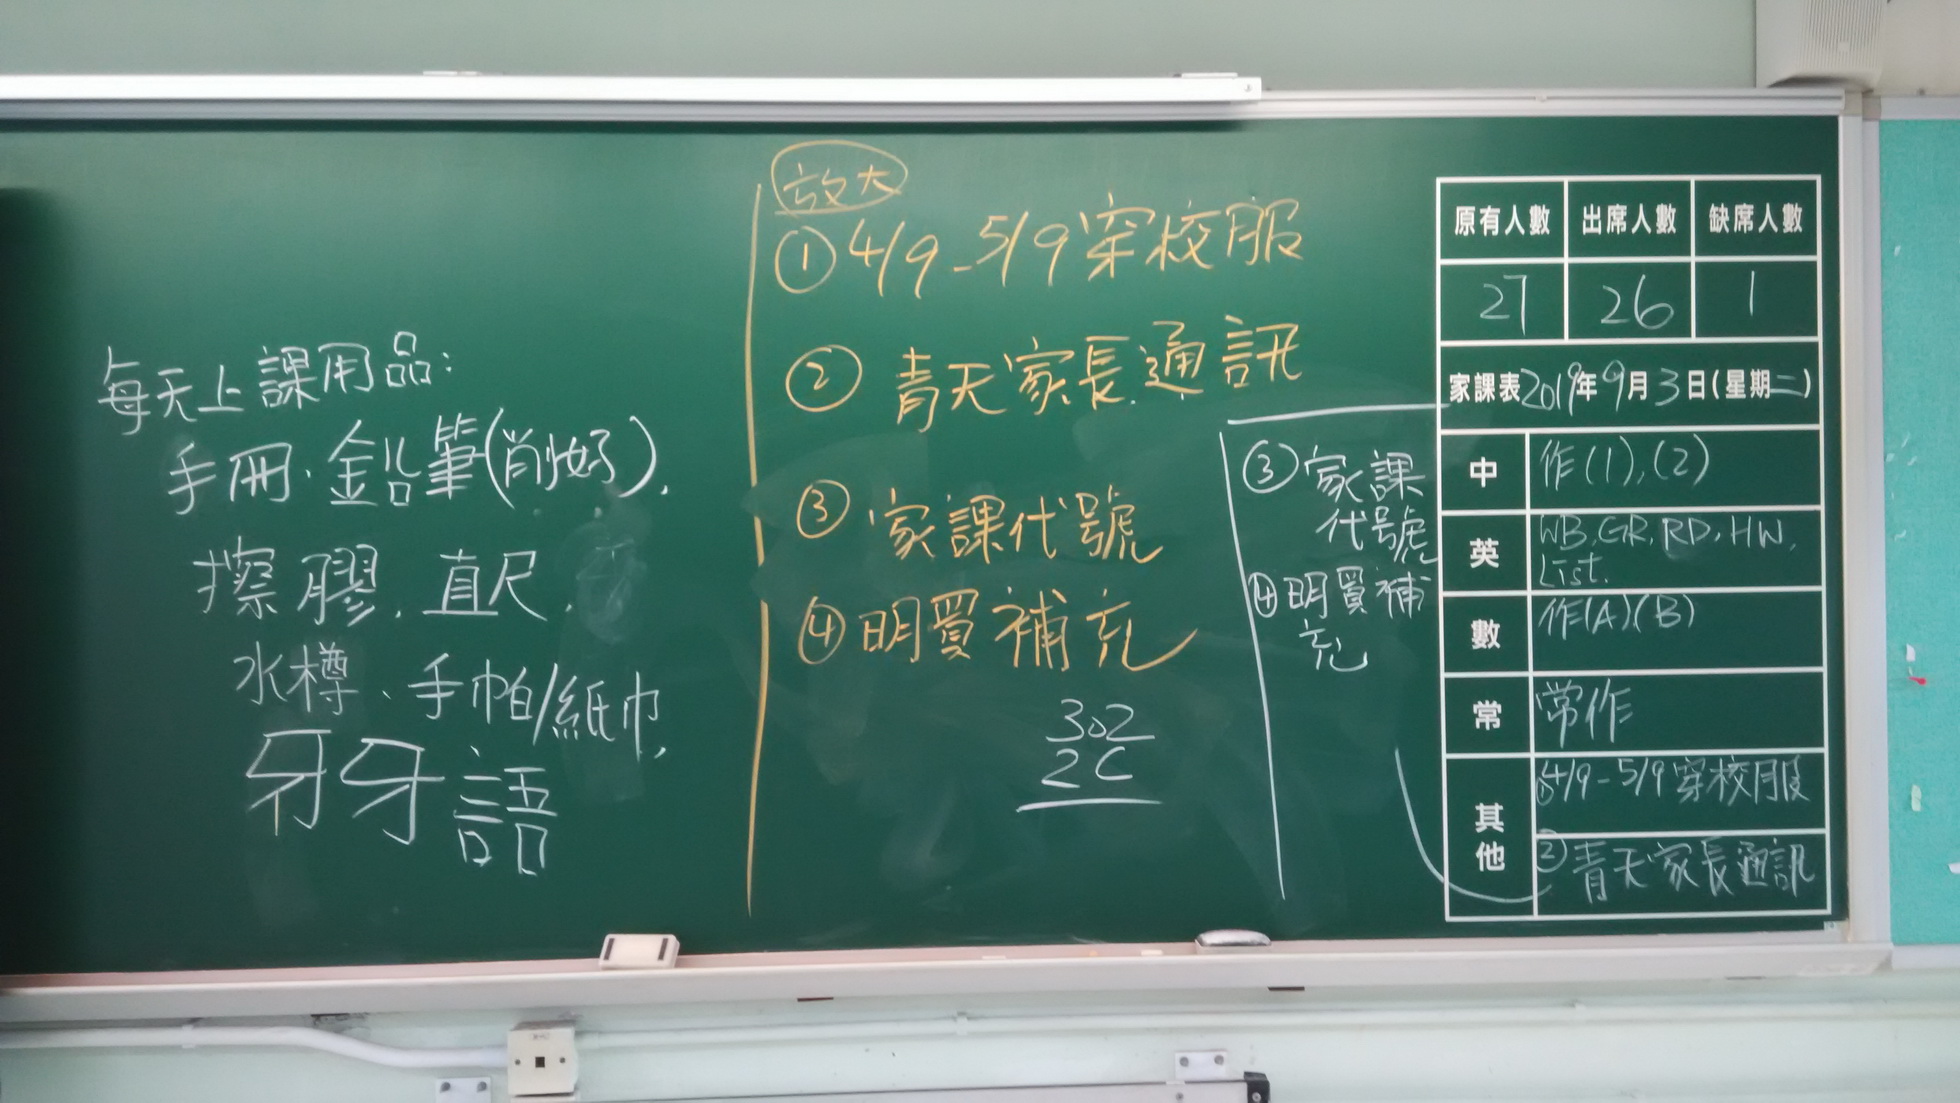 每天上課用品:
手冊、鉛筆(削好)、
擦膠、直尺、
水樽、手帕/紙巾、
牙牙語
放大
①4/9-5/9穿校服
② 青天家長通訊
③ 家課代號
④明買補充
302
2C
③家課
代號
④明買補
充
原有人數 出席人數 缺席人數
27 26 1
家課表2019年9月3日(星期二)
中 作(1),(2)
英 WB, GR, RD, HW,
List.
數 作(A)(B)
常 常作
其他 ①4/9-5/9穿校服
②青天家長通訊